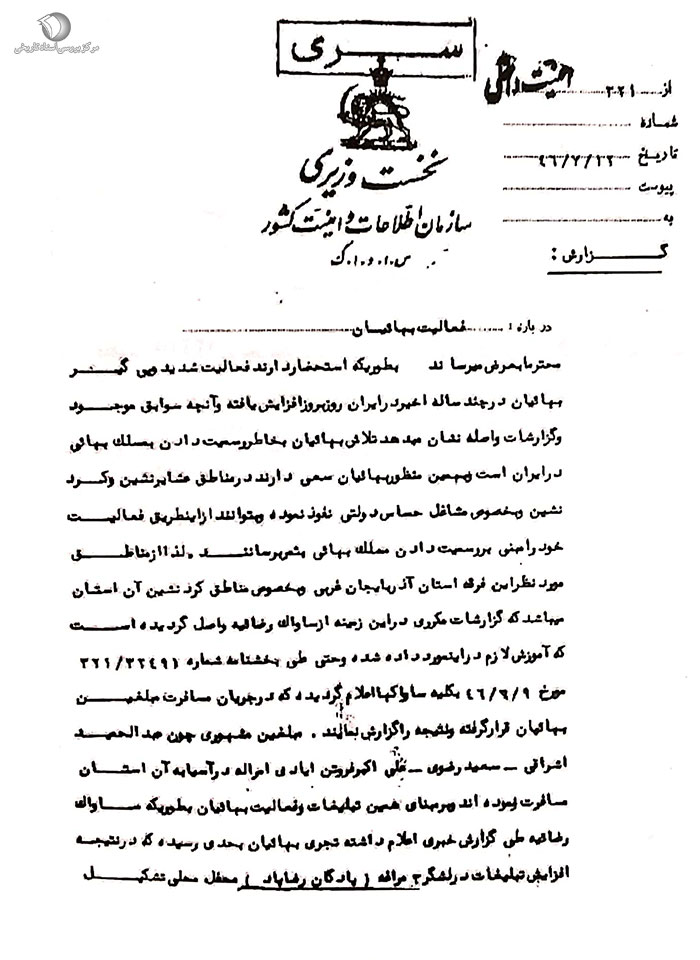 مرکز بررسی اسناد تاریخی
ســری
امنیت داخلی
از ۳۲۱
شماره
تاریخ ۴۶/۷/۲۲
پیوست
به
نخست وزیری
سازمان اطلاعات و امنیت کشور
س.ا.و.ا.ک
گـزارش :
درباره : فعالیت بهائیان
محترما بعرض میرساند بطوریکه استحضار دارند فعالیت شدید وپی گیر
بهائیان درچند ساله اخیر در ایران روزبروز افزایش یافته وآنچه سوابق موجود
وگزارشات واصله نشان میدهد تلاش بهائیان بخاطر وسعت دادن بمسلک بهائی
در ایران است وبهمین منظور بهائیان سعی دارند درمناطق عشایرنشین وکرد
نشین وبخصوص مشاغل حساس دولتی نفوذ نموده وبتوانند ازاینطریق فعالیت
خود رامبنی بروسعت دادن مسلک بهائی بثمر برسانند . لذا ازمناطق
مورد نظر این فرقه استان آذربایجان غربی وبخصوص مناطق کرد نشین آن استان
میباشد که گزارشات مکرری دراین زمینه ازساواک رضائیه واصل گردیده است
که آموزش لازم دراینمورد داده شده وحتی طی بخشنامه شماره ۳۲۱/۳۲۴۹۱
مورخ ۴۶/۶/۹ بکلیه ساواکها اعلام گردیده که درجریان مسافرت مبلغین
بهائیان قرارگرفته ونتیجه راگزارش نمایند . مبلغین مشهوری چون عبدالحمید
اشراقی ـ سعید رضوی ـ علی اکبر فروتن ایادی امراله درآسیا به آن استان
مسافرت نموده اند وبرمبنای همین تبلیغات وفعالیت بهائیان بطوریکه ساواک
رضائیه طی گزارش خبری اعلام داشته تجری بهائیان بحدی رسیده که درنتیجه
افزایش تبلیغات درلشگر ۳ مراغه ( پادگان رضاپاد ) محفل محلی تشکیل